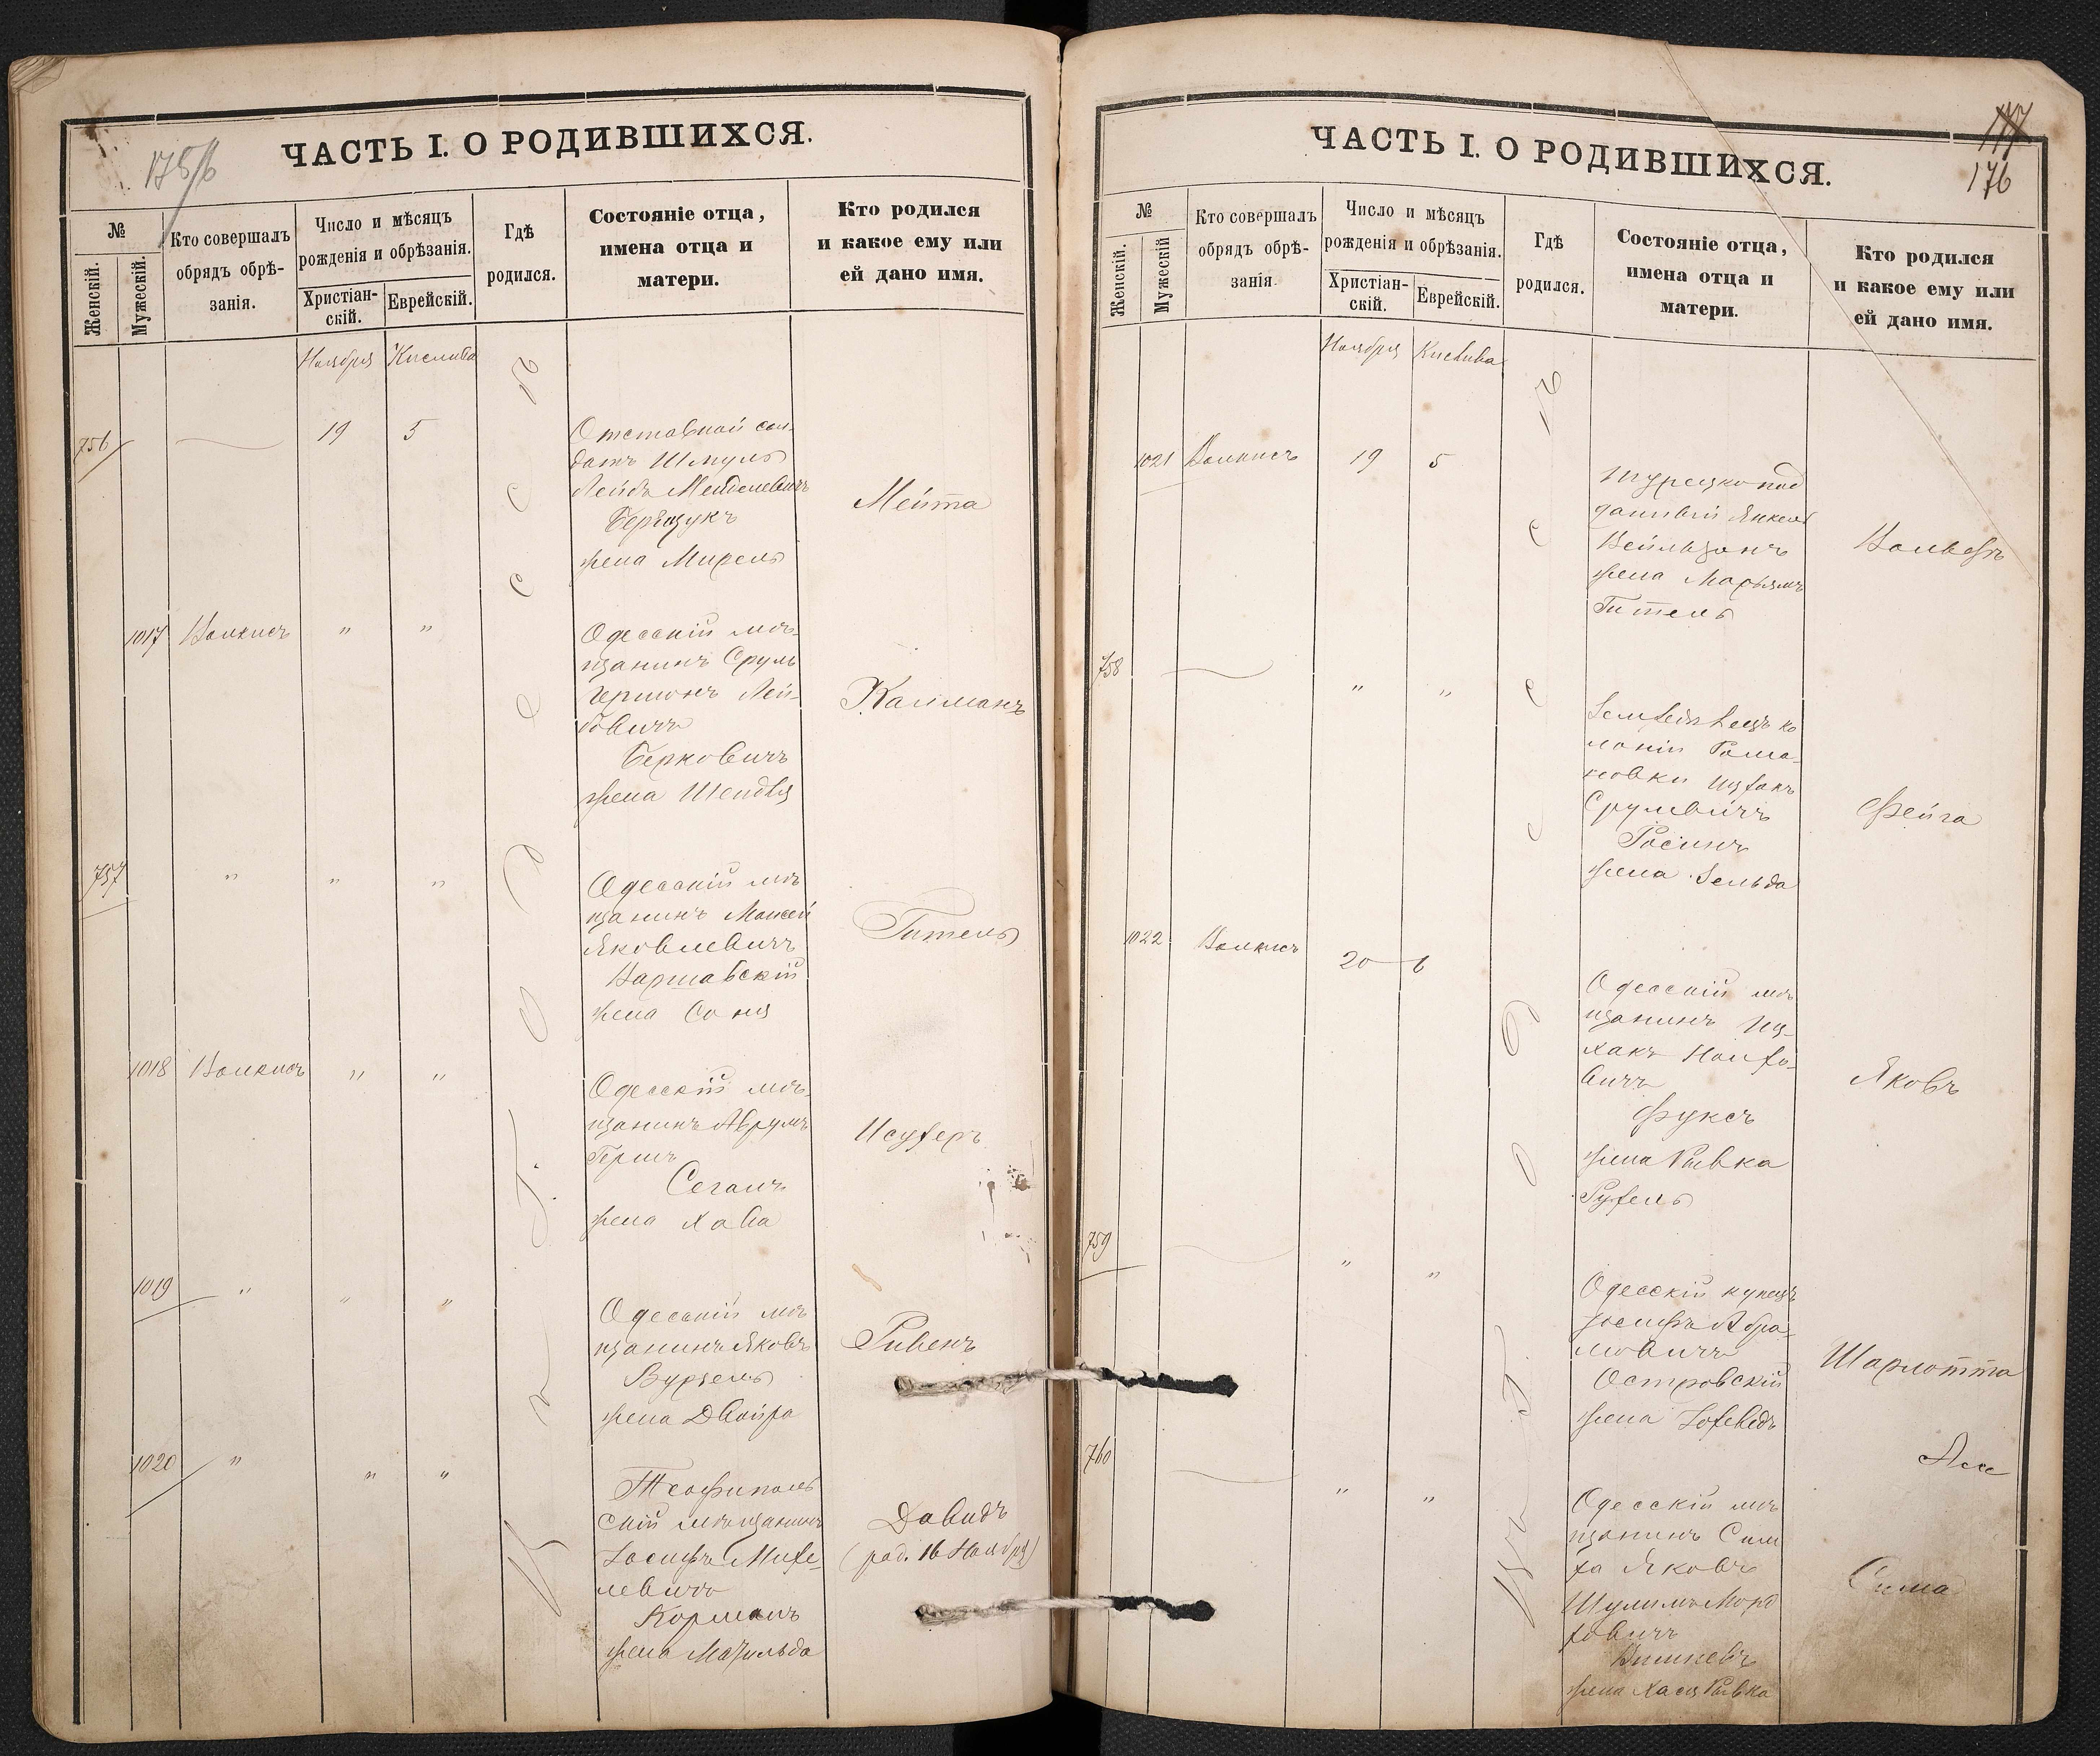 175/б
ЧАСТЬ I. О РОДИВШИХСЯ.
№
Женскій.
Мужескій.
Кто совершалъ
обрядъ обрѣ-
занія.
Число и мѣсяцъ
рожденія и обрѣзанія.
Христіан-
скій.
Еврейскій.
Гдѣ
родился.
Состояніе отца,
имена отца и
матери.
Кто родился
и какое ему или
ей дано имя.
Ноября Кислива
въ г. Одессѣ
756 19 5
Отставной сол-
датъ Шмуль
Лейбъ Менделевичъ
жена Мирель
Мейта
1017 Волкисъ " "
Одесскій мѣ-
щанинъ Сруль
Гершонъ Лей-
бовичъ
Берковичъ
жена Шендля
Калманъ
757 " " "
Одесскій мѣ
щанинъ Моисей
Яковлевичъ
Варшавскій
жена Соня
Гитель
1018 Волкисъ " "
Одесскій мѣ-
щанинъ Аврумъ
Гершъ
Сегалъ
жена Хава
Исухеръ
1019 " " "
Одесскій мѣ
щанинъ Яковъ
Вурзель
жена Двойра
Рувенъ
1020 " " "
Теофиполь
скій мѣщанинъ
Іосифъ Михе-
левичъ
Корманъ
жена Матильда
Давидъ
(род. 16 Ноября)
117
176
ЧАСТЬ I. О РОДИВШИХСЯ.
№
Женскій.
Мужескій
Кто совершалъ
обрядъ обрѣ-
занія.
Число и мѣсяцъ
рожденія и обрѣзанія.
Христіан-
скій.
Еврейскій.
Гдѣ
родился.
Состояніе отца,
имена отца и
матери.
Кто родился
и какое ему или
ей дано имя.
Ноября Кислива
въ г. Одессѣ
1021 Волкисъ 19 5
Турецкопод
данный Янкель
Вейльзонъ
жена Марьямъ
Гитель
Вольфъ
758 " "
Земледѣлецъ ко
лоніи Рома-
новки Ицхакъ
Срулевичъ
Росинъ
жена Зельда
Фейга
1022 Волкисъ 20 6
Одесскій мѣ
щанинъ Иц-
хакъ
Фуксъ
жена Ривка
Рухель
Яковъ
759 " "
Одесскій купецъ
Іосифъ Абра-
мовичъ
Островскій
жена Іохеведъ
Шарлотта
760 " "
Одесскій мѣ
щанинъ Сим
ха Яковъ
Шулимъ Морд
ховичъ
жена Хася Ривка
Сима